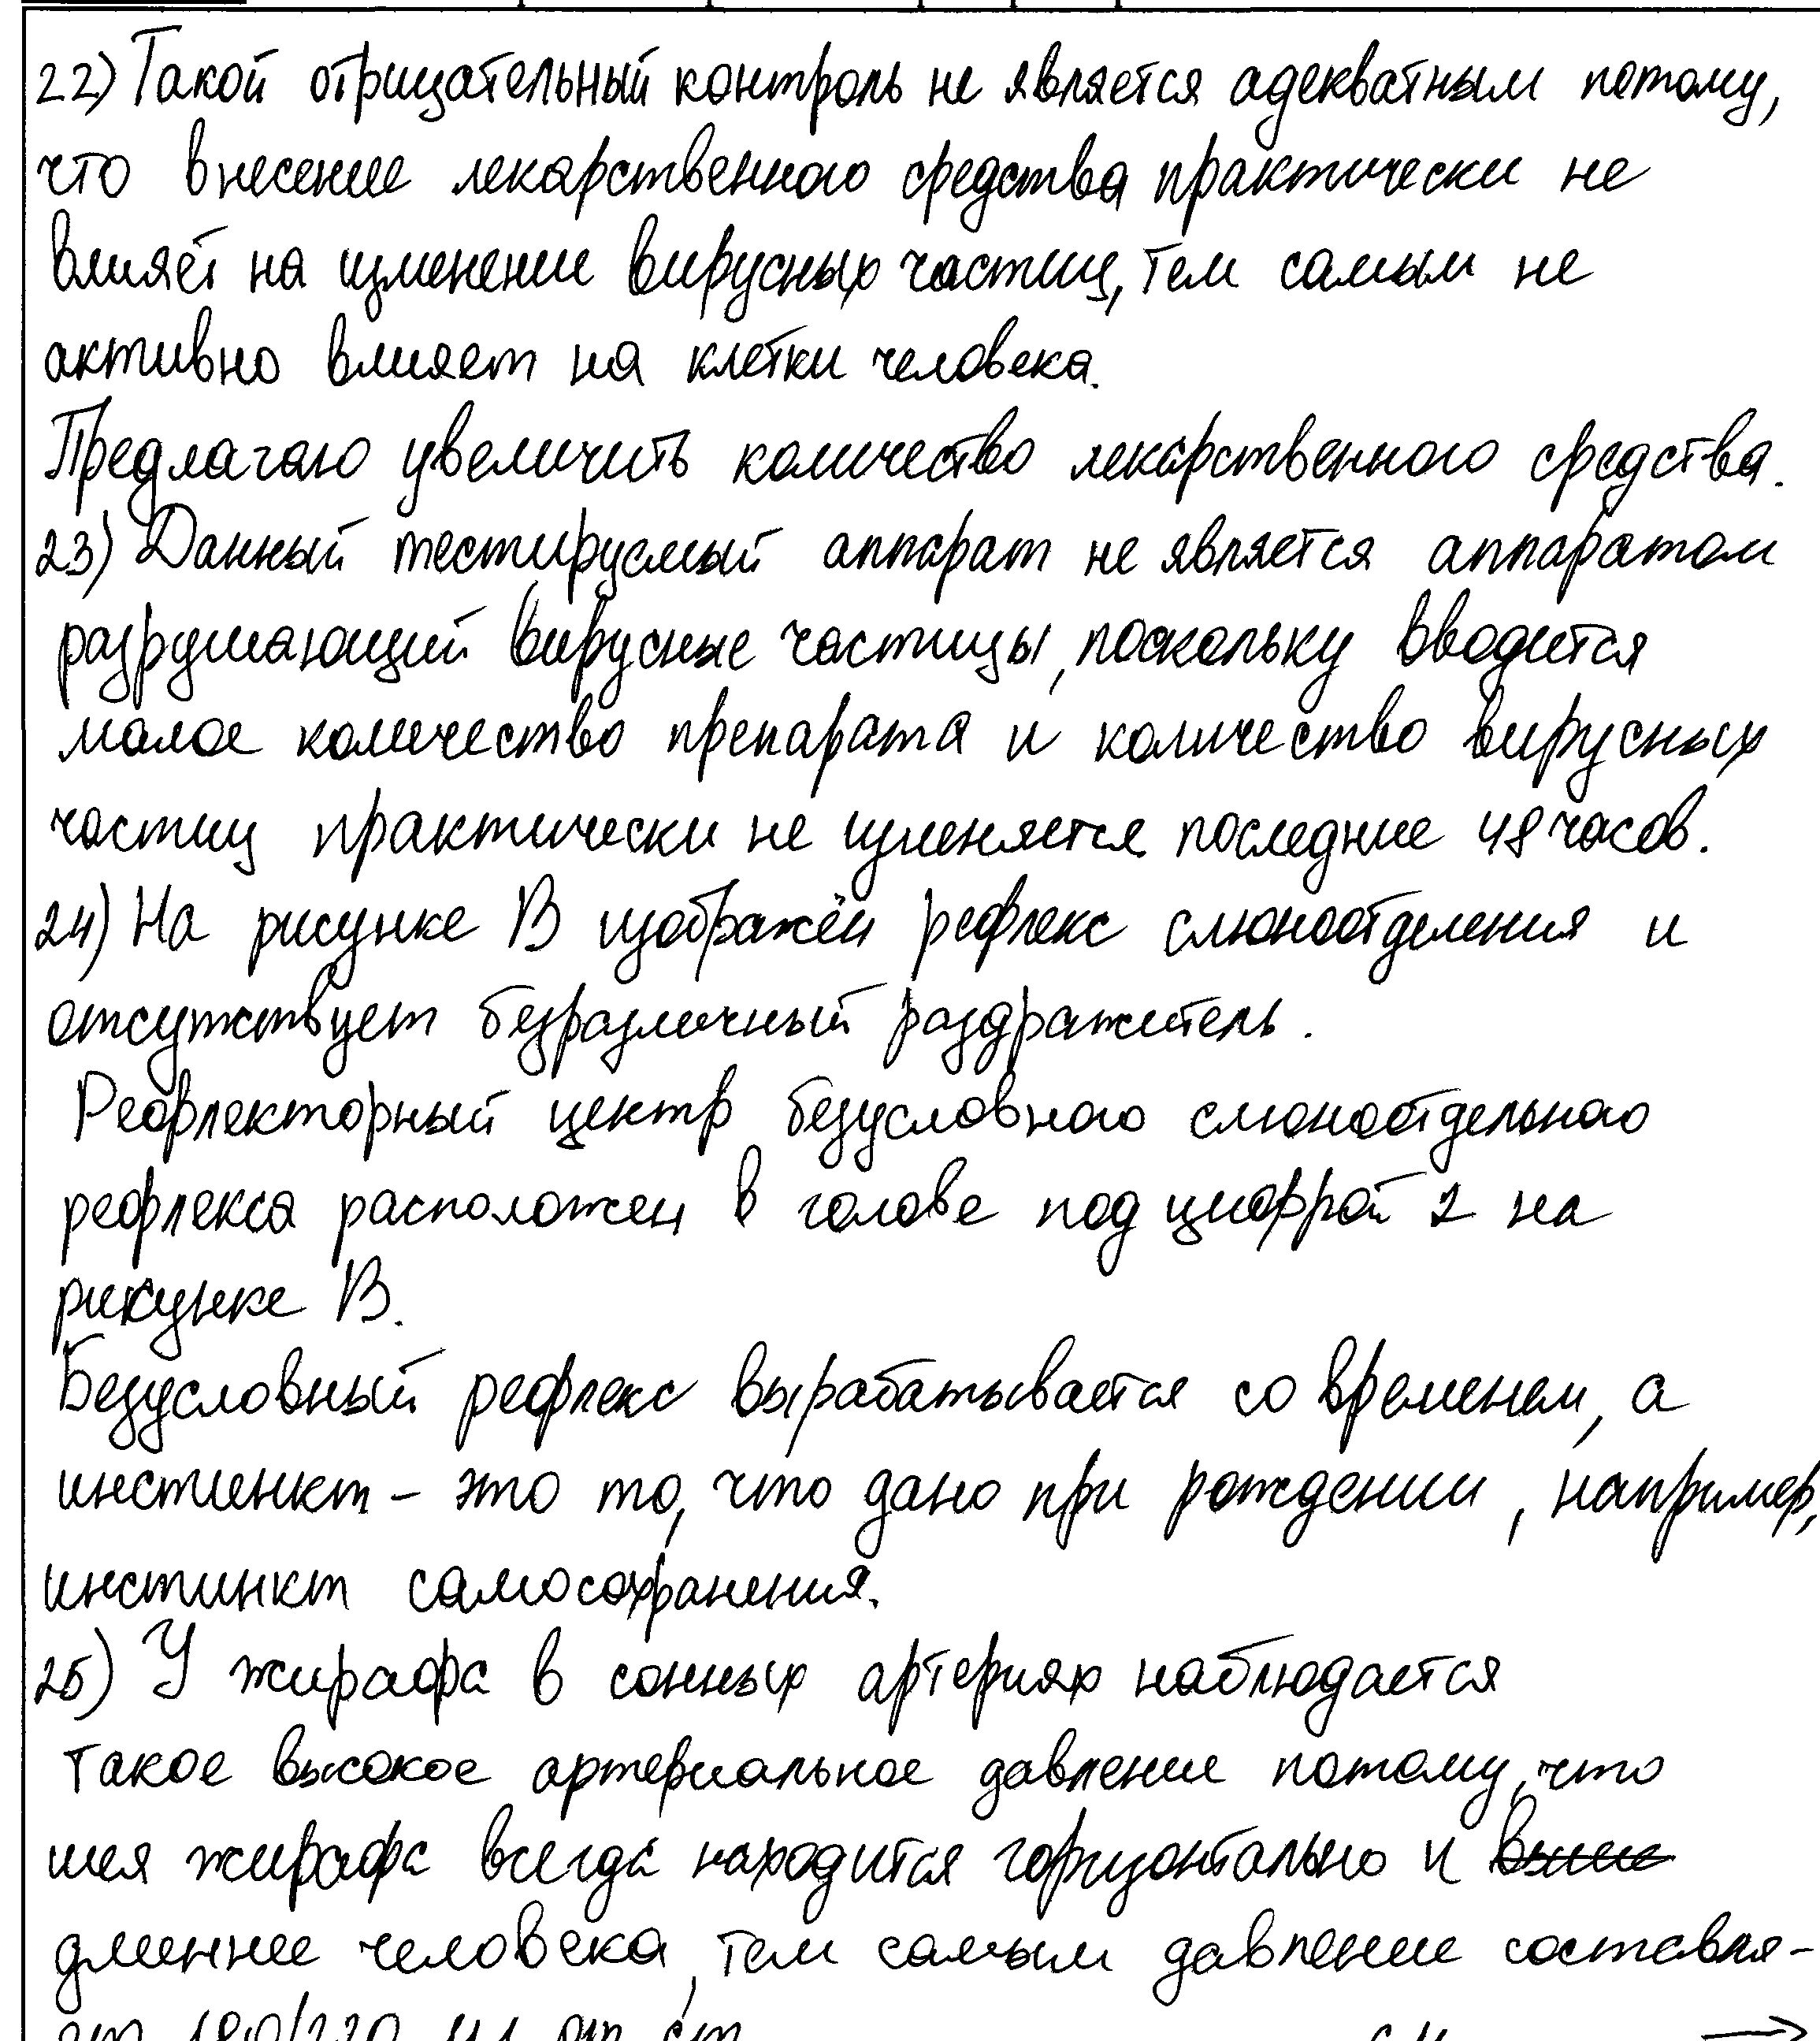 22) Такой отрицательный контроль не является адекватным потому,
что внесение лекарственного средства практически не
влияет на изменение вирусных частиц, тем самым не
активно влияет на клетки человека.
Предлагаю увеличить количество лекарственного средства.
23) Данный тестируемый аппарат не является аппаратом
разрушающий вирусные частицы, поскольку вводится
малое количество препарата и количество вирусных
частиц практически не изменяется последние 48 часов.
24) На рисунке В изображён рефлекс слюноотделения и
отсутствует безразличный раздражитель.
Рефлекторный центр безусловного слюноотдельного
рефлекса расположен в голове под цифрой 2 на
рисунке В.
Безусловный рефлекс вырабатывается со временем, а
инстинкт - это то, что дано при рождении, например,
инстинкт самосохранения.
25) У жирафа в сонных артериях наблюдается
такое высокое артериальное давление потому, что
шея жирафа всегда находится горизонтально и
длиннее человека, тем самым давление составля-